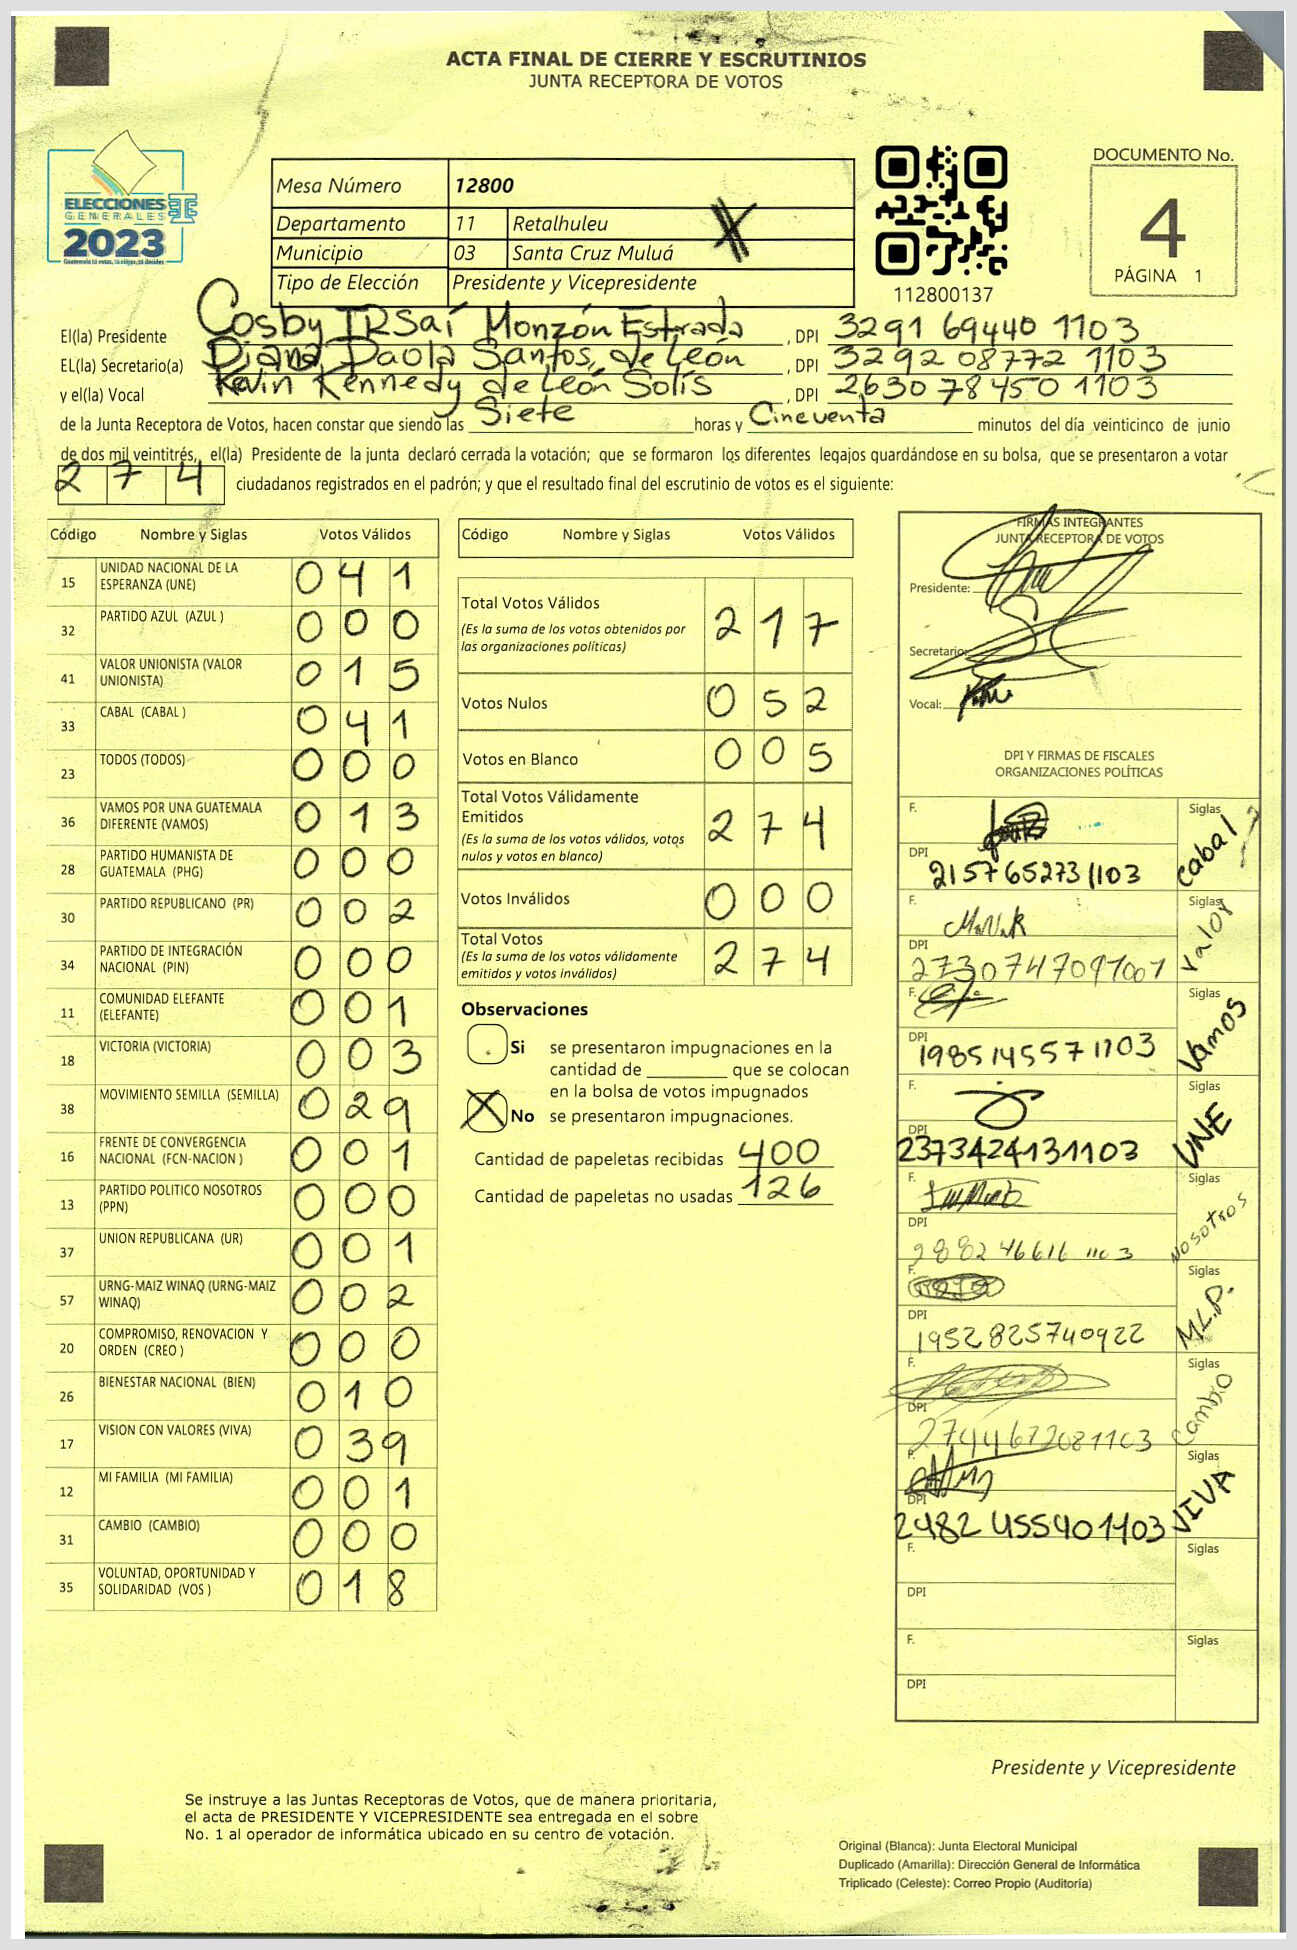 ACTA FINAL DE CIERRE Y ESCRUTINIOS
JUNTA RECEPTORA DE VOTOS
ELECCIONES
GENERALES
2023
Mesa Número 12800
Departamento 11 Retalhuleu
Municipio 03 Santa Cruz Muluá
Tipo de Elección Presidente y Vicepresidente
112800137
DOCUMENTO No.
4
PÁGINA 1
El(la) Presidente Cosby IRSaí Monzón Estrada, DPI 3291 69440 1103
EL(la) Secretario(a) Diana Paola Santos de León, DPI 3292 08772 1103
y el(la) Vocal Kevin Kennedy de León Solís, DPI 2630 78450 1103
de la Junta Receptora de Votos, hacen constar que siendo las Siete horas y Cincuenta minutos del día veinticinco de junio
de dos mil veintitrés, el(la) Presidente de la junta declaró cerrada la votación; que se formaron los diferentes legajos guardándose en su bolsa, que se presentaron a votar
274 ciudadanos registrados en el padrón; y que el resultado final del escrutinio de votos es el siguiente:
Código Nombre y Siglas Votos Válidos
15 UNIDAD NACIONAL DE LA ESPERANZA (UNE) 041
32 PARTIDO AZUL (AZUL ) 000
41 VALOR UNIONISTA (VALOR UNIONISTA) 015
33 CABAL (CABAL ) 041
23 TODOS (TODOS) 000
36 VAMOS POR UNA GUATEMALA DIFERENTE (VAMOS) 013
28 PARTIDO HUMANISTA DE GUATEMALA (PHG) 000
30 PARTIDO REPUBLICANO (PR) 002
34 PARTIDO DE INTEGRACIÓN NACIONAL (PIN) 000
11 COMUNIDAD ELEFANTE (ELEFANTE) 001
18 VICTORIA (VICTORIA) 003
38 MOVIMIENTO SEMILLA (SEMILLA) 029
16 FRENTE DE CONVERGENCIA NACIONAL (FCN-NACION ) 001
13 PARTIDO POLITICO NOSOTROS (PPN) 000
37 UNION REPUBLICANA (UR) 001
57 URNG-MAIZ WINAQ (URNG-MAIZ WINAQ) 002
20 COMPROMISO, RENOVACION Y ORDEN (CREO ) 000
26 BIENESTAR NACIONAL (BIEN) 010
17 VISION CON VALORES (VIVA) 039
12 MI FAMILIA (MI FAMILIA) 001
31 CAMBIO (CAMBIO) 000
35 VOLUNTAD, OPORTUNIDAD Y SOLIDARIDAD (VOS ) 018
Código Nombre y Siglas Votos Válidos
Total Votos Válidos 217
(Es la suma de los votos obtenidos por
las organizaciones políticas)
Votos Nulos 052
Votos en Blanco 005
Total Votos Válidamente
Emitidos 274
(Es la suma de los votos válidos, votos
nulos y votos en blanco)
Votos Inválidos 000
Total Votos 274
(Es la suma de los votos válidamente
emitidos y votos inválidos)
Observaciones
Si se presentaron impugnaciones en la
cantidad de ________ que se colocan
en la bolsa de votos impugnados
X No se presentaron impugnaciones.
Cantidad de papeletas recibidas 400
Cantidad de papeletas no usadas 126
FIRMAS INTEGRANTES
JUNTA RECEPTORA DE VOTOS
Presidente:
Secretario:
Vocal:
DPI Y FIRMAS DE FISCALES
ORGANIZACIONES POLÍTICAS
F. Siglas cabal
DPI 2157652731103
F. Siglas valor
DPI
F. Siglas Vamos
DPI 1985145571103
F. Siglas UNE
DPI 2373424131103
F. Siglas NOSOTROS
DPI 288246616 1103
F. Siglas M.L.P.
DPI 1952825740922
F. Siglas cambio
DPI 2744672081103
F. Siglas VIVA
DPI 2482 455401103
F. Siglas
DPI
F. Siglas
DPI
Presidente y Vicepresidente
Se instruye a las Juntas Receptoras de Votos, que de manera prioritaria,
el acta de PRESIDENTE Y VICEPRESIDENTE sea entregada en el sobre
No. 1 al operador de informática ubicado en su centro de votación.
Original (Blanca): Junta Electoral Municipal
Duplicado (Amarilla): Dirección General de Informática
Triplicado (Celeste): Correo Propio (Auditoría)